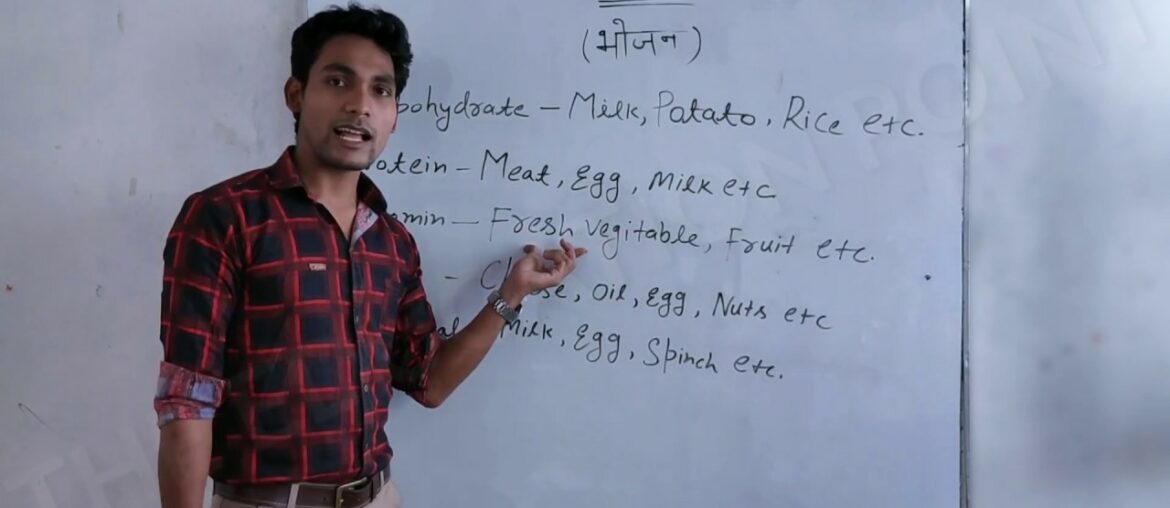 (भोजन)
bohydrate – Milk, Potato, Rice etc.
otein – Meat, Egg, Milk etc
amin – Fresh Vegitable, Fruit etc.
– Oil, Egg, Nuts etc
al Milk, Egg, Spinch etc.